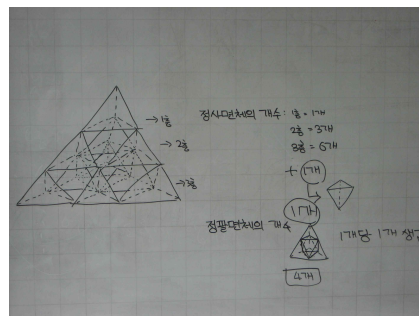 → 1층
→ 2층
→ 3층
정사면체의 개수 : 1층 = 1개
2층 = 3개
3층 = 6개
+ 1개
11개
정팔면체의 개수
1개당 1개 생김
4개